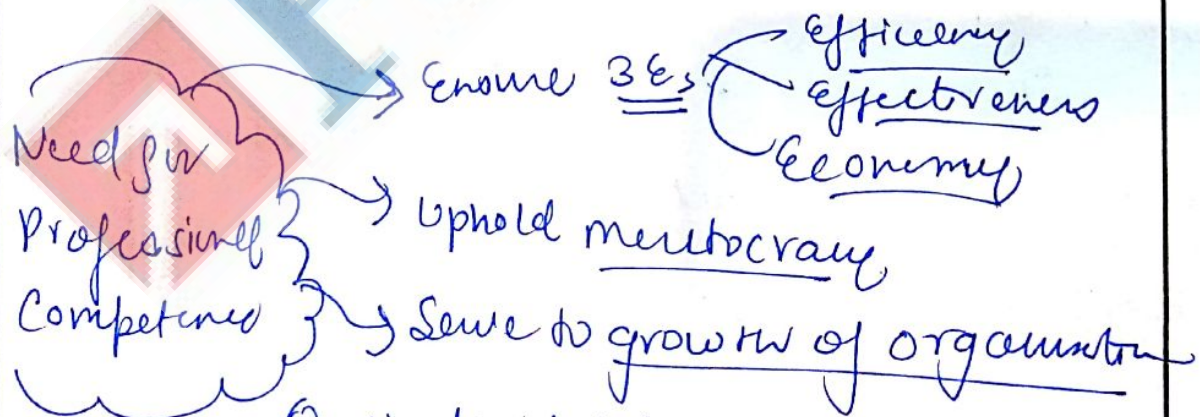 Need for
Professional
Competence
Ensure 3Es
Efficiency
Effectiveness
Economy
Uphold meritocracy
Serve to growth of organisation